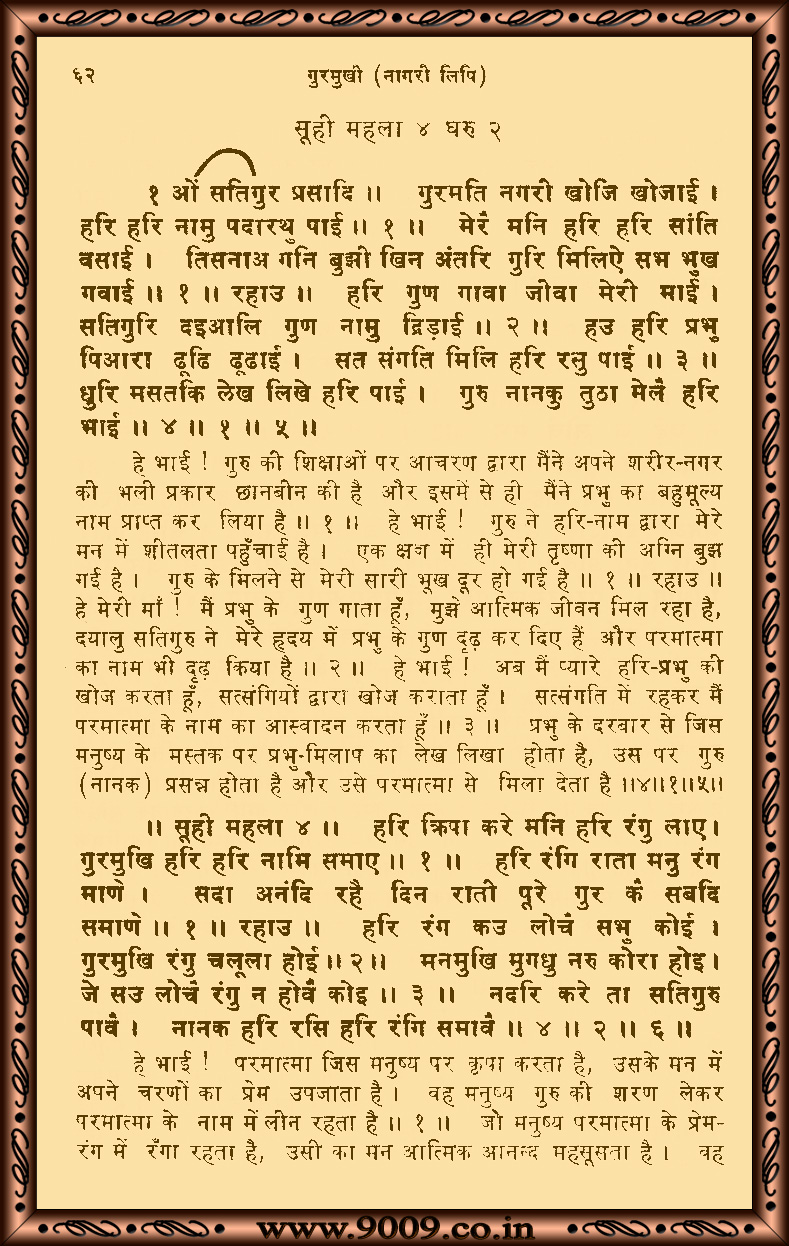 www.9009.co.in
६२ गुरमुखी (नागरी लिपि)
सूही महला ४ घरु २
१ ओं सतिगुर प्रसादि ।। गुरमति नगरी खोजि खोजाई ।
हरि हरि नामु पदारथु पाई ।। १ ।। मेरै मनि हरि हरि सांति
वसाई । तिसनाअ गनि बुझी खिन अंतरि गुरि मिलिऐ सभ भुख
गवाई ।। १ ।। रहाउ ।। हरि गुण गावा जीवा मेरी माई ।
सतिगुरि दइआलि गुण नामु द्रिड़ाई ।। २ ।। हउ हरि प्रभु
पिआरा ढूढि ढूढाई । सत संगति मिलि हरि रसु पाई ।। ३ ।।
धुरि मसतकि लेख लिखे हरि पाई । गुरु नानकु तुठा मेलै हरि
भाई ।। ४ ।। १ ।। ५ ।।
हे भाई ! गुरु की शिक्षाओं पर आचरण द्वारा मैंने अपने शरीर-नगर
की भली प्रकार छानबीन की है और इसमें से ही मैंने प्रभु का बहुमूल्य
नाम प्राप्त कर लिया है ।। १ ।। हे भाई ! गुरु ने हरि-नाम द्वारा मेरे
मन में शीतलता पहुँचाई है । एक क्षण में ही मेरी तृष्णा की अग्नि बुझ
गई है । गुरु के मिलने से मेरी सारी भूख दूर हो गई है ।। १ ।। रहाउ ।।
हे मेरी माँ ! मैं प्रभु के गुण गाता हूँ, मुझे आत्मिक जीवन मिल रहा है,
दयालु सतिगुरु ने मेरे हृदय में प्रभु के गुण दृढ़ कर दिए हैं और परमात्मा
का नाम भी दृढ़ किया है ।। २ ।। हे भाई ! अब मैं प्यारे हरि-प्रभु की
खोज करता हूँ, सत्संगियों द्वारा खोज कराता हूँ । सत्संगति में रहकर मैं
परमात्मा के नाम का आस्वादन करता हूँ ।। ३ ।। प्रभु के दरबार से जिस
मनुष्य के मस्तक पर प्रभु-मिलाप का लेख लिखा होता है, उस पर गुरु
(नानक) प्रसन्न होता है और उसे परमात्मा से मिला देता है ।।४।।१।।५।।
।। सूही महला ४ ।। हरि क्रिपा करे मनि हरि रंगु लाए।
गुरमुखि हरि हरि नामि समाए ।। १ ।। हरि रंगि राता मनु रंग
माणे । सदा अनंदि रहै दिन राती पूरे गुर कै सबदि
समाणे ।। १ ।। रहाउ ।। हरि रंग कउ लोचै सभु कोई ।
गुरमुखि रंगु चलूला होई ।। २ ।। मनमुखि मुगधु नरु कोरा होइ।
जे सउ लोचै रंगु न होवै कोइ ।। ३ ।। नदरि करे ता सतिगुरु
पावै । नानक हरि रसि हरि रंगि समावै ।। ४ ।। २ ।। ६ ।।
हे भाई ! परमात्मा जिस मनुष्य पर कृपा करता है, उसके मन में
अपने चरणों का प्रेम उपजाता है । वह मनुष्य गुरु की शरण लेकर
परमात्मा के नाम में लीन रहता है ।। १ ।। जो मनुष्य परमात्मा के प्रेम-
रंग में रँगा रहता है, उसी का मन आत्मिक आनन्द महसूसता है । वह
www.9009.co.in